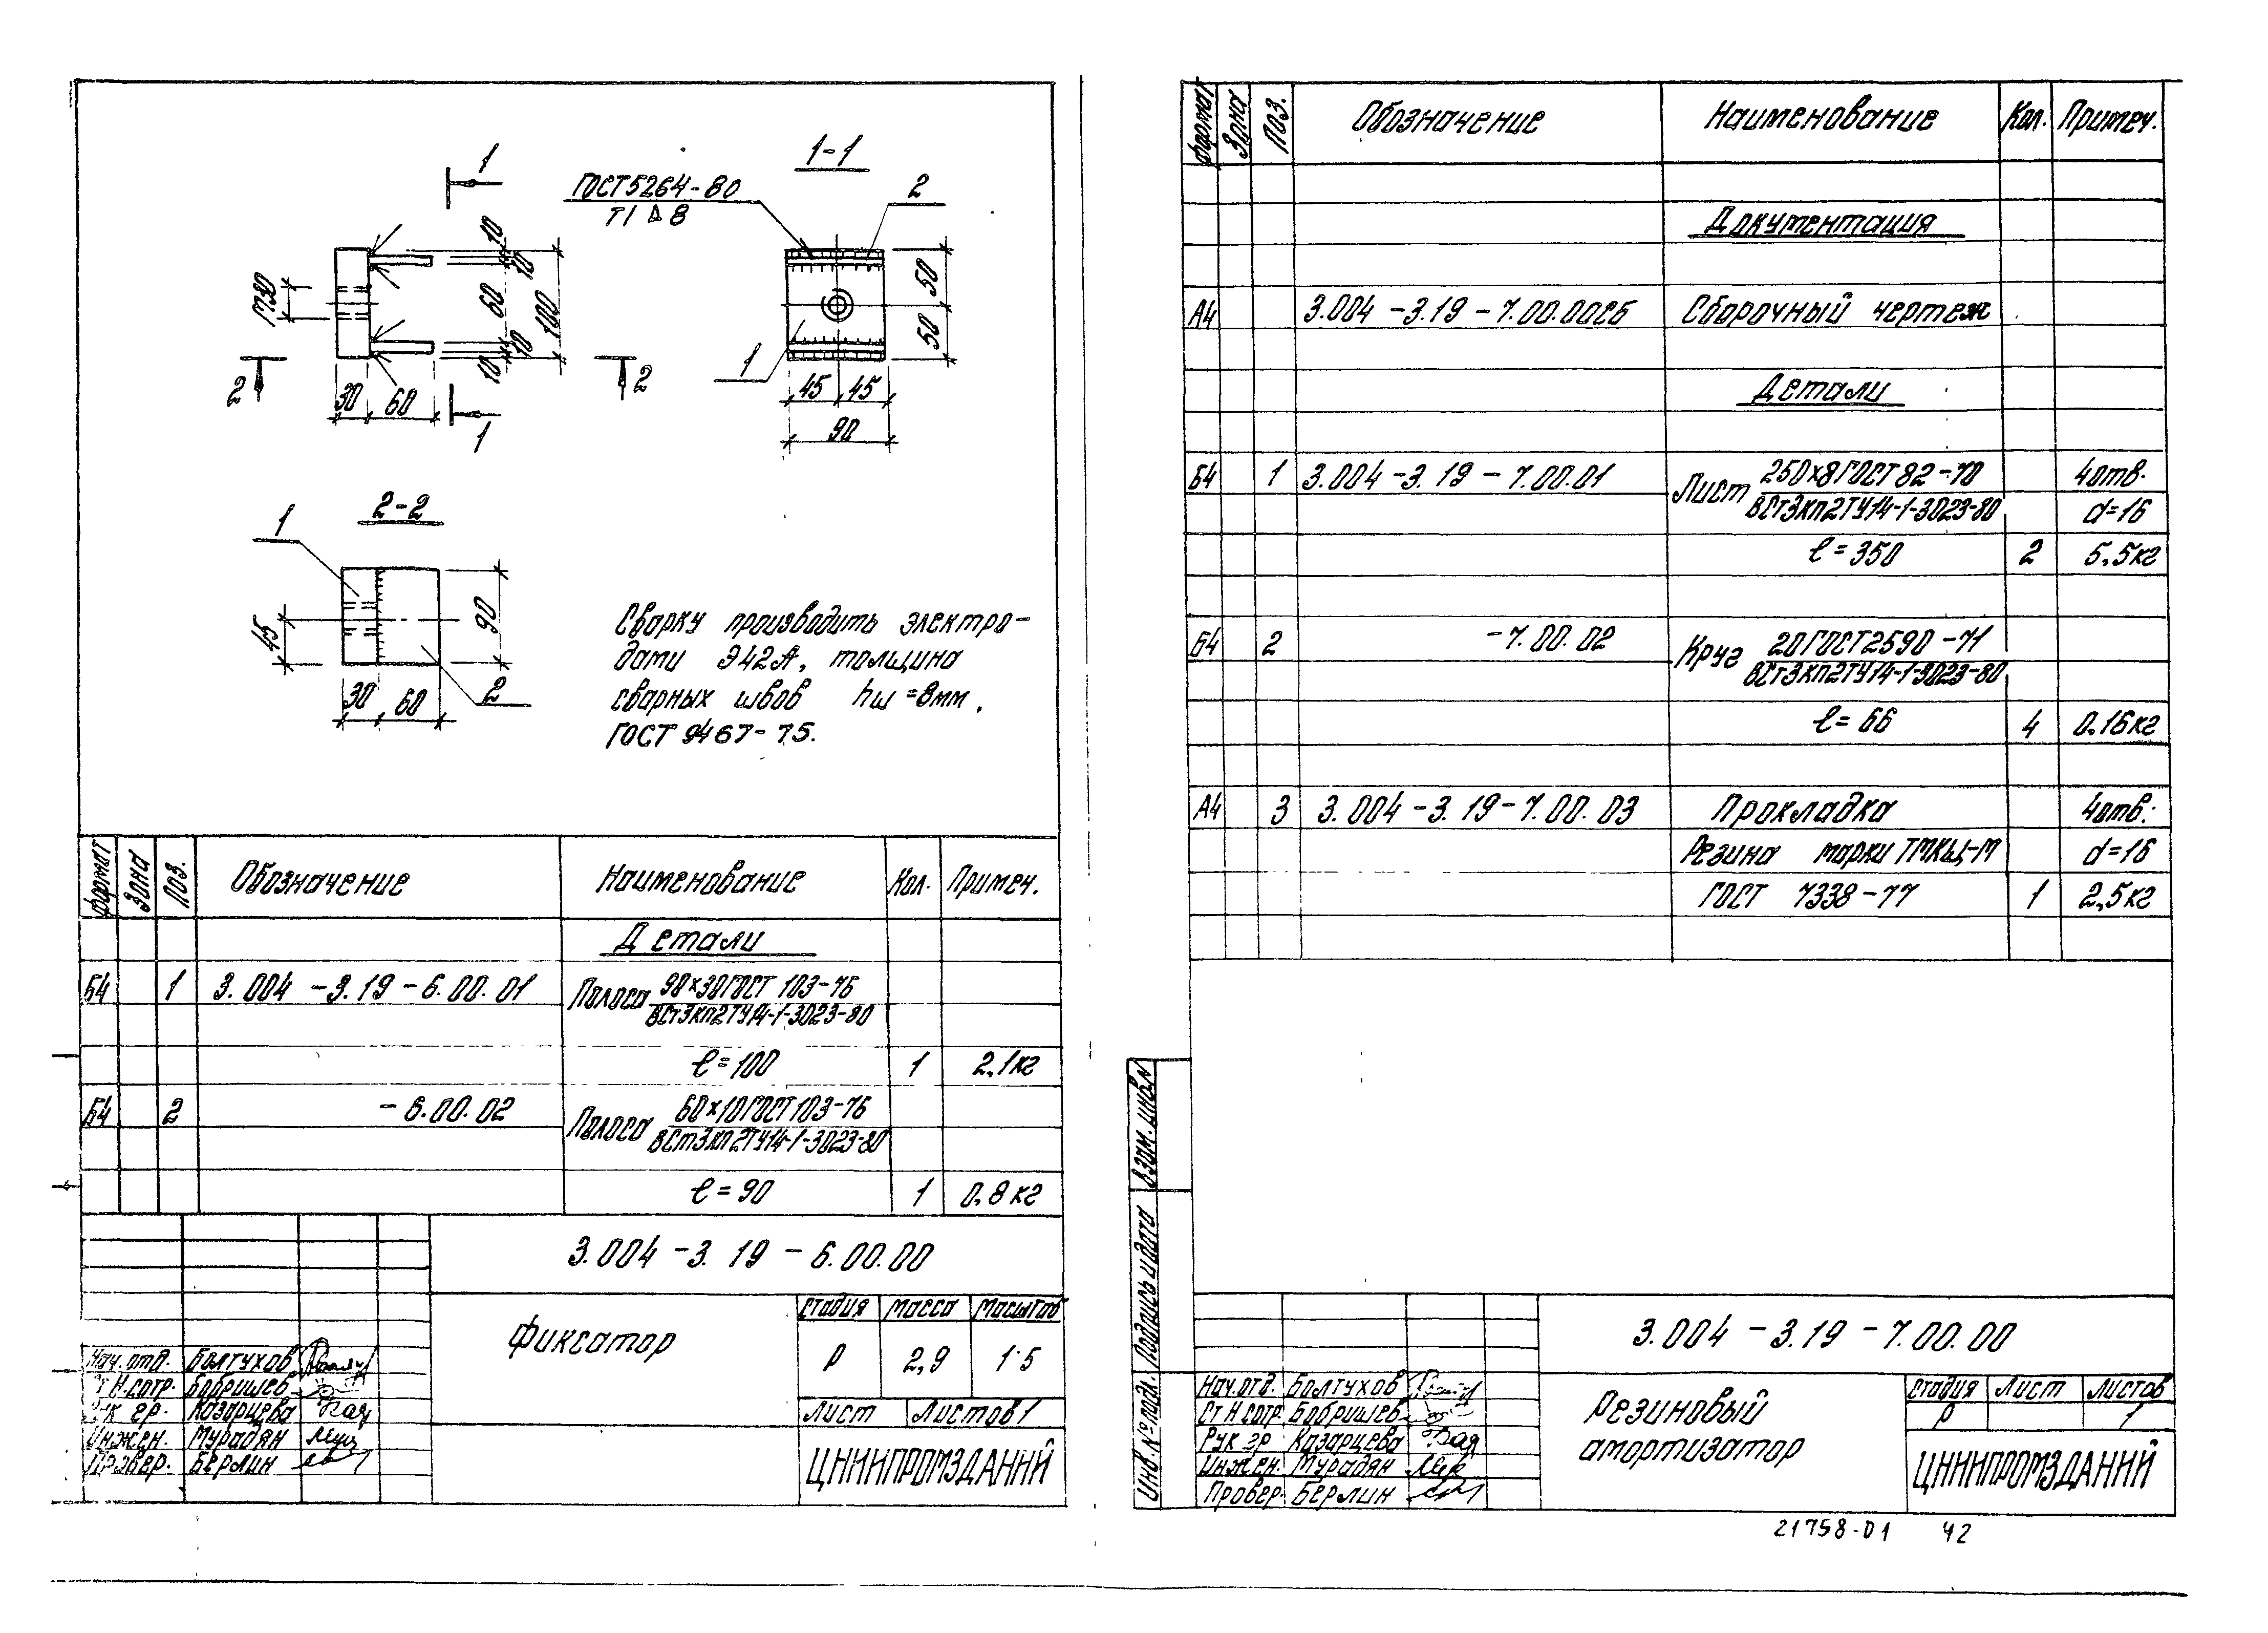 1
1-1
ГОСТ5264-80
Т1 △ 8
2
10
10
60
100
10
10
М30
50
50
1
2
2
30
60
1
45
45
90
2-2
1
45
90
30
60
2
Сварку производить электро-
дами Э42А, толщина
сварных швов hш=8мм.
ГОСТ 9467-75.
формат Зона Поз. Обозначение Наименование Кол. Примеч.
Детали
Б4 1 3.004-3.19-6.00.01 Полоса 90×30ГОСТ 103-76
ВСт3кп2ТУ14-1-3023-80
ℓ=100 1 2,1кг
Б4 2 -6.00.02 Полоса 60×10ГОСТ103-76
ВСт3кп2ТУ14-1-3023-80
ℓ=90 1 0,8кг
3.004-3.19-6.00.00
Фиксатор
Стадия Масса Масштаб
Р 2,9 1:5
Лист Листов 1
ЦНИИПРОМЗДАНИЙ
Нач.отд. Болтухов
Ст Н.сотр. Бобришев
Рук гр. Казарцева
Инжен. Мурадян
Провер. Берлин
формат Зона Поз. Обозначение Наименование Кол. Примеч.
Документация
А4 3.004-3.19-7.00.00СБ Сборочный чертеж
Детали
Б4 1 3.004-3.19-7.00.01 Лист 250×8ГОСТ82-70 4отв.
ВСт3кп2ТУ14-1-3023-80 d=16
ℓ=350 2 5,5кг
Б4 2 -7.00.02 Круг 20ГОСТ2590-71
ВСт3кп2ТУ14-1-3023-80
ℓ=66 4 0,16кг
А4 3 3.004-3.19-7.00.03 Прокладка 4отв.
Резина марки ТМКЩ-М d=16
ГОСТ 7338-77 1 2,5кг
Взам. инв.№
Подпись и дата
Инв.№ подл.
3.004-3.19-7.00.00
Нач.отд. Болтухов
Ст Н.сотр. Бобришев
Рук гр Казарцева
Инжен. Мурадян
Провер. Берлин
Резиновый
амортизатор
Стадия Лист Листов
Р 1
ЦНИИПРОМЗДАНИЙ
21758-01 42